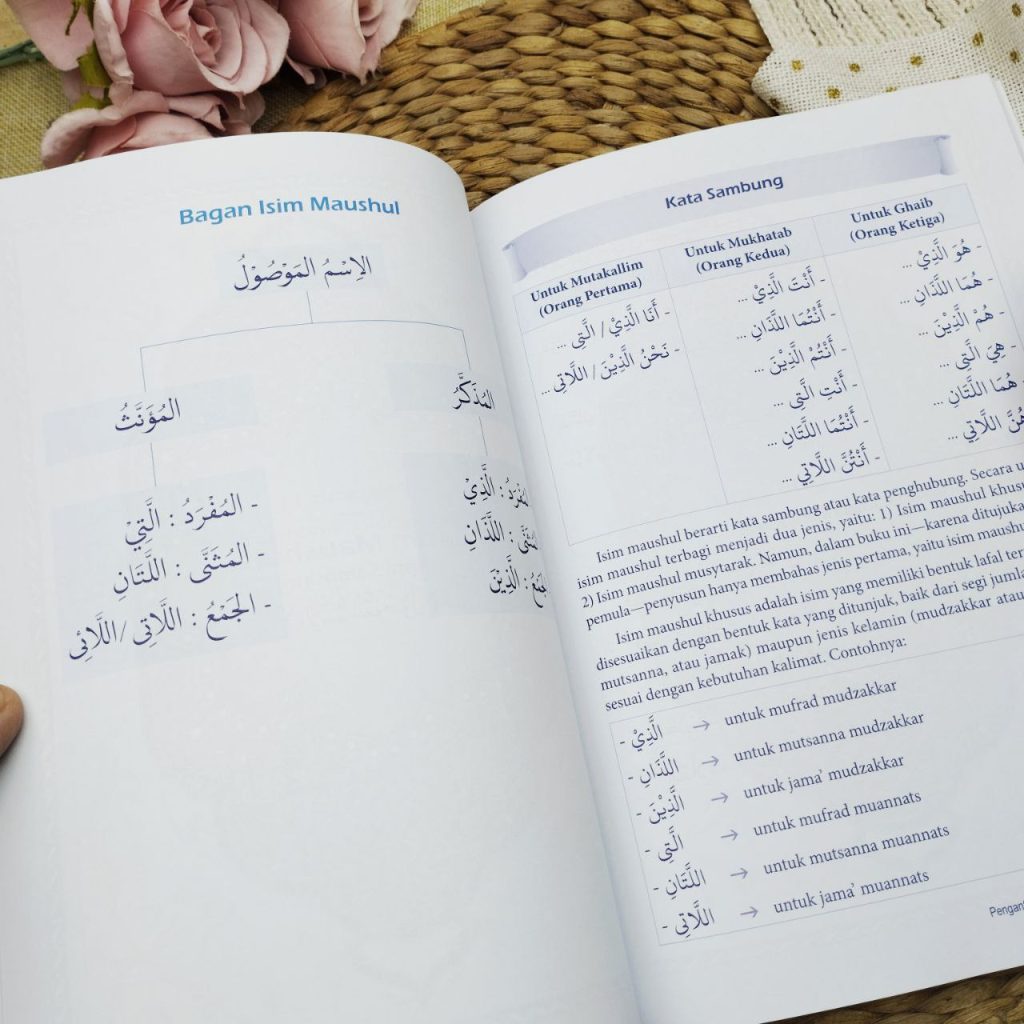 Bagan Isim Maushul
الاِسْمُ المَوْصُوْلُ
المُذَكَّرُ
المُؤَنَّثُ
الَّذِيْ
اللَّذَانِ
الَّذِيْنَ
- المُفْرَدُ : الَّتِيْ
- المُثَنَّى : اللَّتَانِ
- الجَمْعُ : اللَّاتِى / اللَّائِى
Kata Sambung
Untuk Mutakallim
(Orang Pertama)
- أَنَا الَّذِيْ / الَّتِى ...
- نَحْنُ الَّذِيْنَ / اللَّاتِى ...
Untuk Mukhatab
(Orang Kedua)
- أَنْتَ الَّذِيْ ...
- أَنْتُمَا اللَّذَانِ ...
- أَنْتُمْ الَّذِيْنَ ...
- أَنْتِ الَّتِى ...
- أَنْتُمَا اللَّتَانِ ...
- أَنْتُنَّ اللَّاتِي ...
Untuk Ghaib
(Orang Ketiga)
- هُوَ الَّذِيْ ...
- هُمَا اللَّذَانِ ...
- هُمْ الَّذِيْنَ ...
- هِيَ الَّتِى ...
هُمَا اللَّتَانِ ...
هُنَّ اللَّاتِي ...
Isim maushul berarti kata sambung atau kata penghubung. Secara
isim maushul terbagi menjadi dua jenis, yaitu: 1) Isim maushul
2) Isim maushul musytarak. Namun, dalam buku ini—karena
pemula—penyusun hanya membahas jenis pertama, yaitu isim
Isim maushul khusus adalah isim yang memiliki bentuk lafal
disesuaikan dengan bentuk kata yang ditunjuk, baik dari segi
mutsanna, atau jamak) maupun jenis kelamin (mudzakkar atau
sesuai dengan kebutuhan kalimat. Contohnya:
- الَّذِيْ → untuk mufrad mudzakkar
- اللَّذَانِ → untuk mutsanna mudzakkar
- الَّذِيْنَ → untuk jama' mudzakkar
- الَّتِى → untuk mufrad muannats
- اللَّتَانِ → untuk mutsanna muannats
- اللَّاتِى → untuk jama' muannats